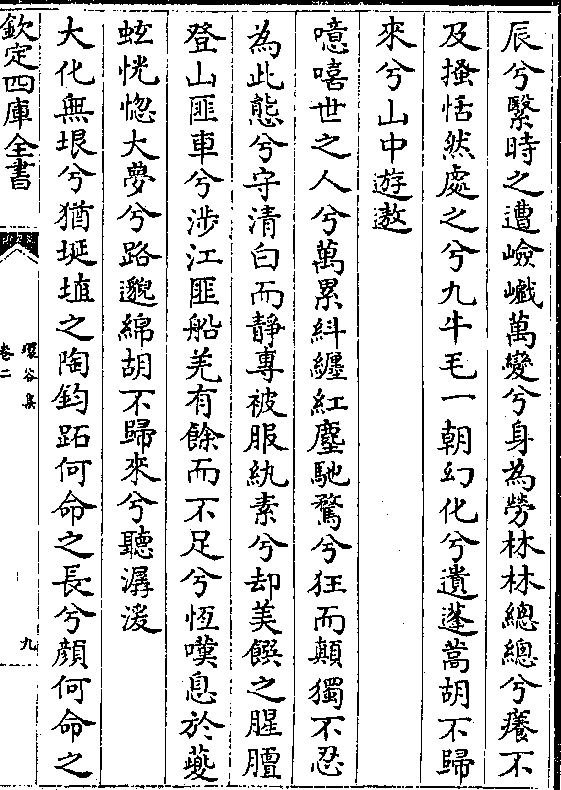 辰兮繄時之遭嶮巇萬變兮身為勞林林總總兮癢不
及搔恬然處之兮九牛毛一朝幻化兮遺蓬蒿胡不歸
來兮山中遊遨
噫嘻世之人兮萬累糾纒紅塵馳騖兮狂而顛獨不忍
為此態兮守清白而静專被服紈素兮却美饌之腥膻
登山匪車兮涉江匪船羌有餘而不足兮恆嘆息於夔
蚿恍惚大夢兮路邈綿胡不歸來兮聽潺湲
大化無垠兮猶埏埴之陶鈞跖何命之長兮顔何命之
欽定四庫全書
環谷集
卷二
九